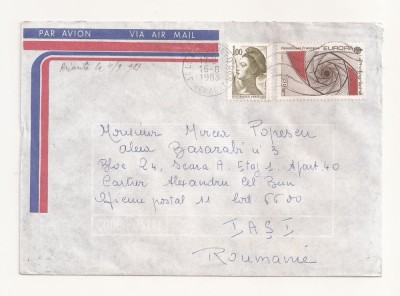 PAR AVION VIA AIR MAIL
1,00
République Française EUROPA
16-8
1983
Monsieur Mircea Popescu
alea Basarabi n° 3
Bloc 24, Scara A, Etaj 1. Apart 40
Cartier Alexandru cel Bun
Oficiu postal 11 cod 6600
IAŞI
Roumanie